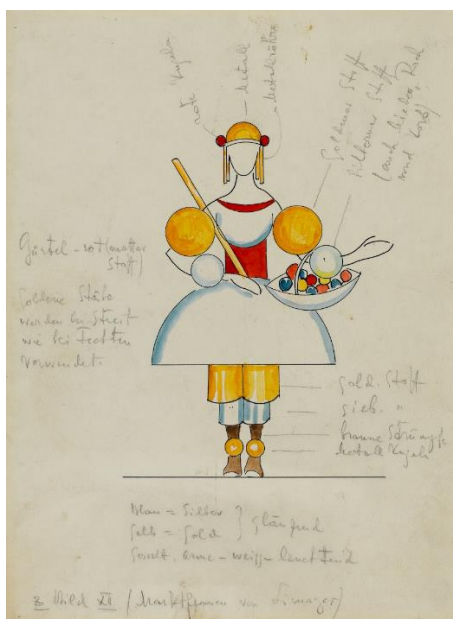 rote Kugeln
Metall
Metallröhre
Goldner Stoff
silberner Stoff
(auch lieber Rock
und Korb)
Gürtel - rot (matter
Stoff)
Goldene Stäbe
werden bei Streit
wie bei Fechten
verwendet.
Gold. Stoff
silb. "
braune Strümpfe
Metall Kugeln
Blau = Silber
Gelb = Gold } glänzend
Sonst. Arme - weiss - leuchtend
z Bild XII (Marktfrauen von